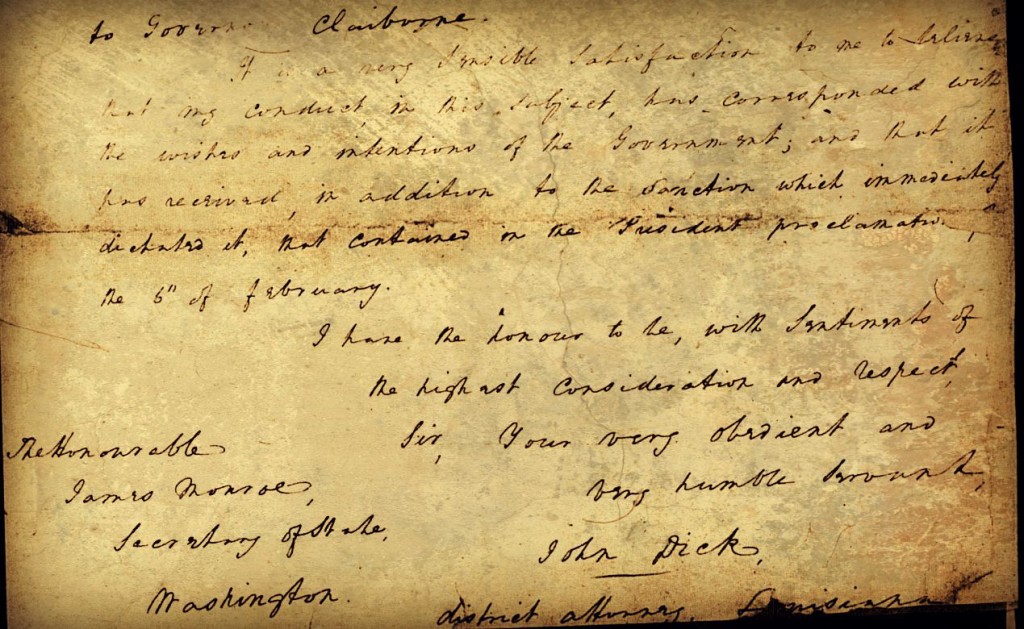 to Governor Claiborne.
It is a very sensible satisfaction to me to believe,
that my conduct, in this subject, has corresponded with
the wishes and intentions of the Government; and that it
has received, in addition to the sanction which immediately
dictated it, that contained in the President proclamation, of
the 6th of february.
I have the honour to be, with sentiments of
the highest consideration and respect,
Sir, Your very obedient and
very humble servant,
The Honourable
James Monroe,
Secretary of State,
Washington.
John Dick,
district attorney, Louisiana